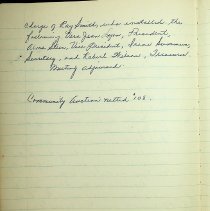 charge of Ray Smith, who installed the
following: Vera Jean, President,
Alma Stein, Vice President, Irene
Secretary, and Robert Nelson, Treasurer.
Meeting adjourned.
Community Auction netted $103.